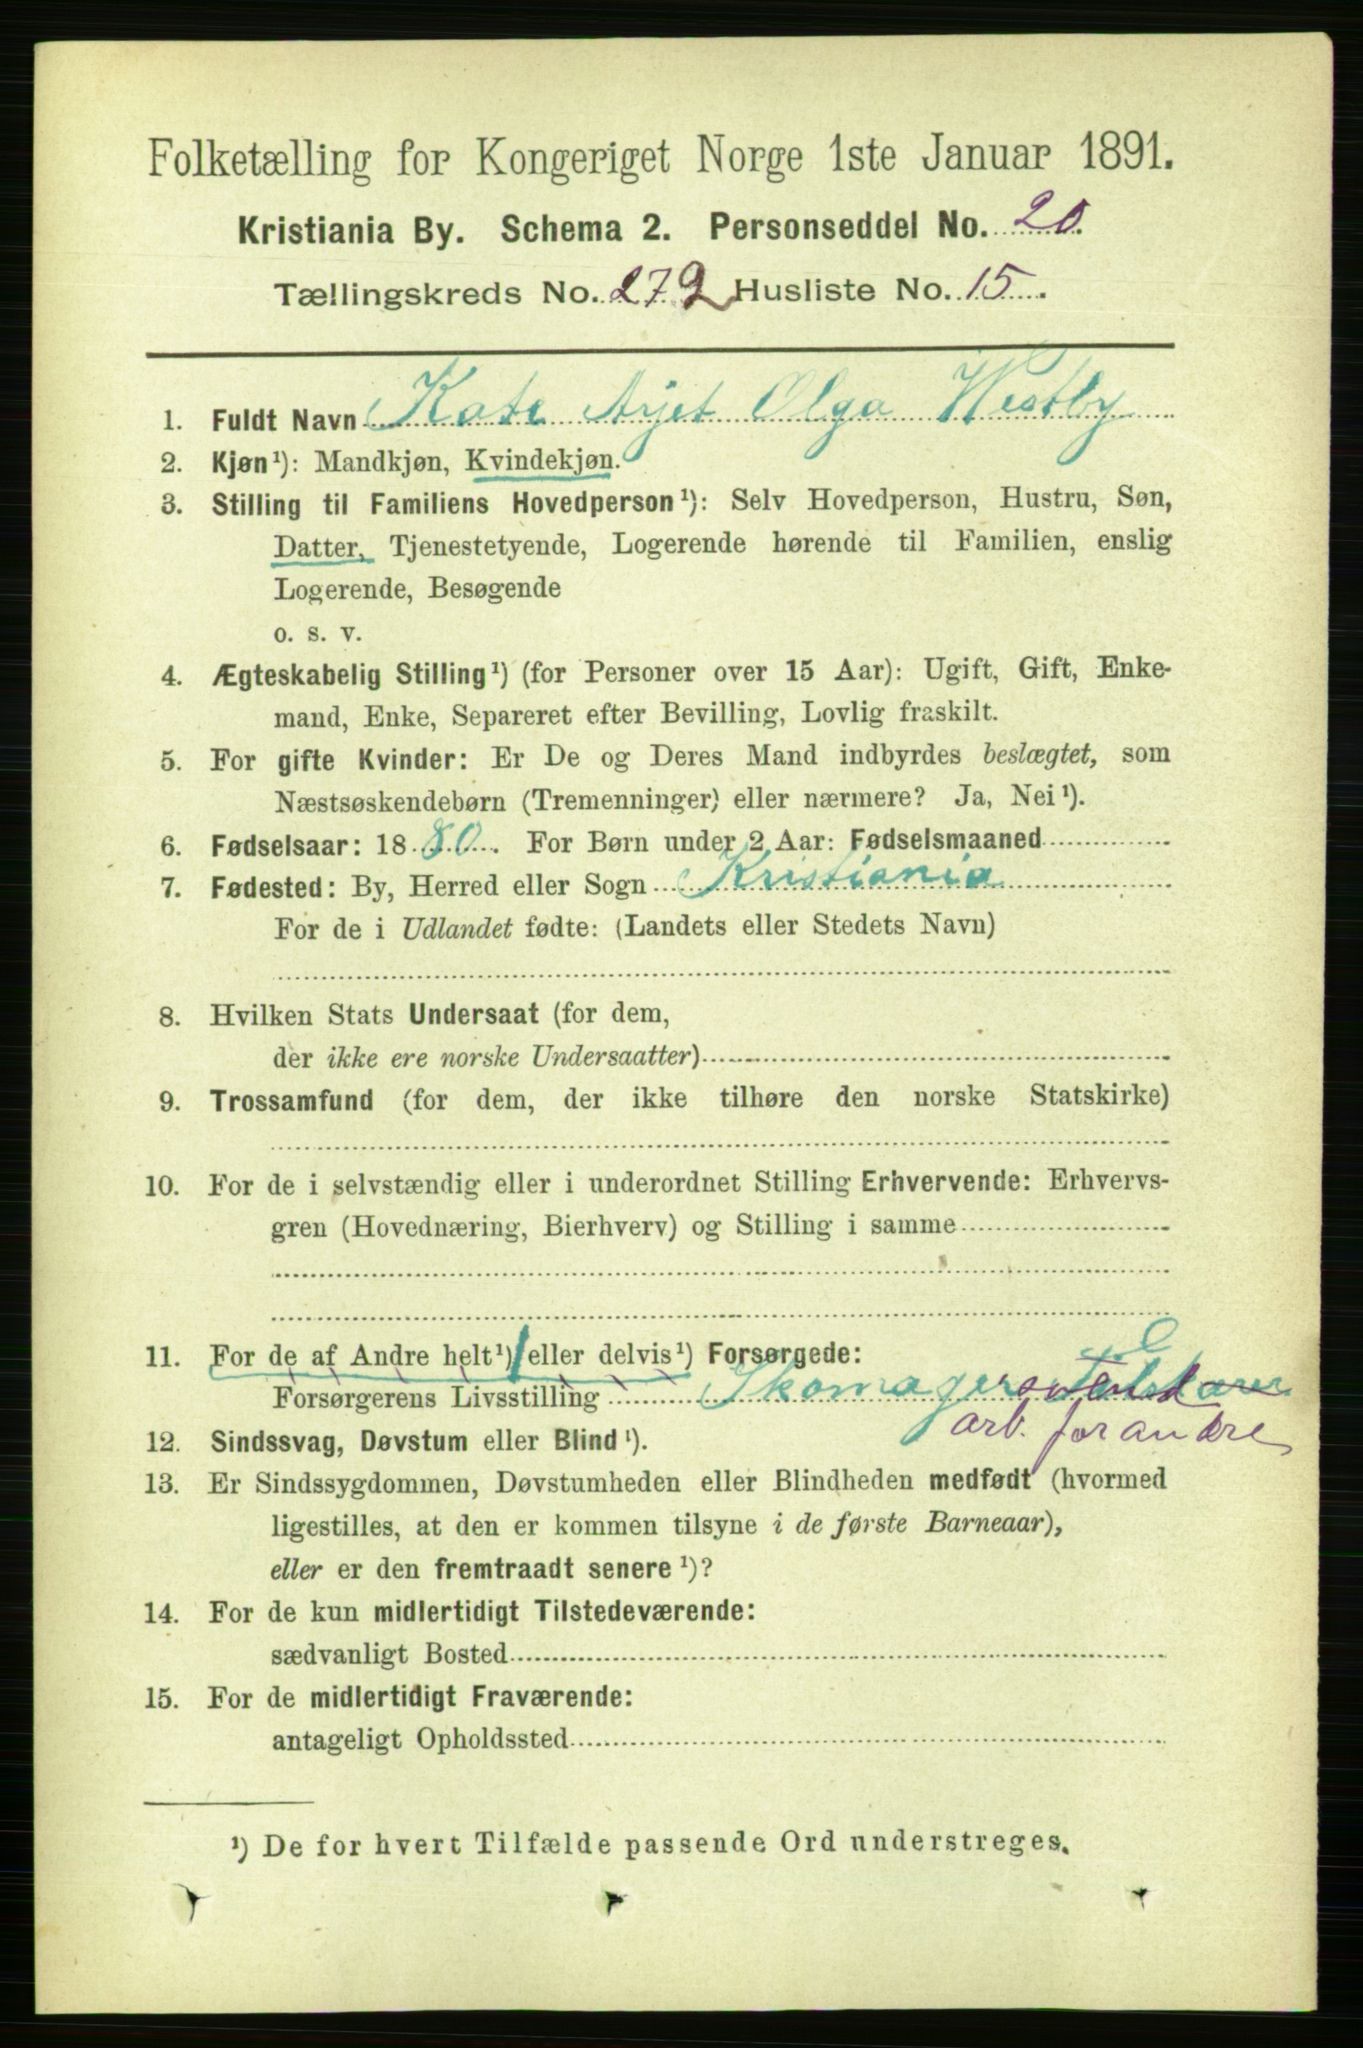 Folketælling for Kongeriget Norge 1ste Januar 1891.
Kristiania By. Schema 2. Personseddel No. 20
Tællingskreds No. 272 Husliste No. 15.
1. Fuldt Navn Kate Olga Westby
2. Kjøn¹): Mandkjøn, Kvindekjøn.
3. Stilling til Familiens Hovedperson¹): Selv Hovedperson, Hustru, Søn,
Datter, Tjenestetyende, Logerende hørende til Familien, enslig
Logerende, Besøgende
o. s. v.
4. Ægteskabelig Stilling¹) (for Personer over 15 Aar): Ugift, Gift, Enke-
mand, Enke, Separeret efter Bevilling, Lovlig fraskilt.
5. For gifte Kvinder: Er De og Deres Mand indbyrdes beslægtet, som
Næstsøskendebørn (Tremenninger) eller nærmere? Ja, Nei¹).
6. Fødselsaar: 1880. For Børn under 2 Aar: Fødselsmaaned
7. Fødested: By, Herred eller Sogn Kristiania
For de i Udlandet fødte: (Landets eller Stedets Navn)
8. Hvilken Stats Undersaat (for dem,
der ikke ere norske Undersaatter)
9. Trossamfund (for dem, der ikke tilhøre den norske Statskirke)
10. For de i selvstændig eller i underordnet Stilling Erhvervende: Erhvervs-
gren (Hovednæring, Bierhverv) og Stilling i samme
11. For de af Andre helt¹) eller delvis¹) Forsørgede:
Forsørgerens Livsstilling Skomager
arb. for andre
12. Sindssvag, Døvstum eller Blind¹).
13. Er Sindssygdommen, Døvstumheden eller Blindheden medfødt (hvormed
ligestilles, at den er kommen tilsyne i de første Barneaar),
eller er den fremtraadt senere¹)?
14. For de kun midlertidigt Tilstedeværende:
sædvanligt Bosted
15. For de midlertidigt Fraværende:
antageligt Opholdssted
¹) De for hvert Tilfælde passende Ord understreges.